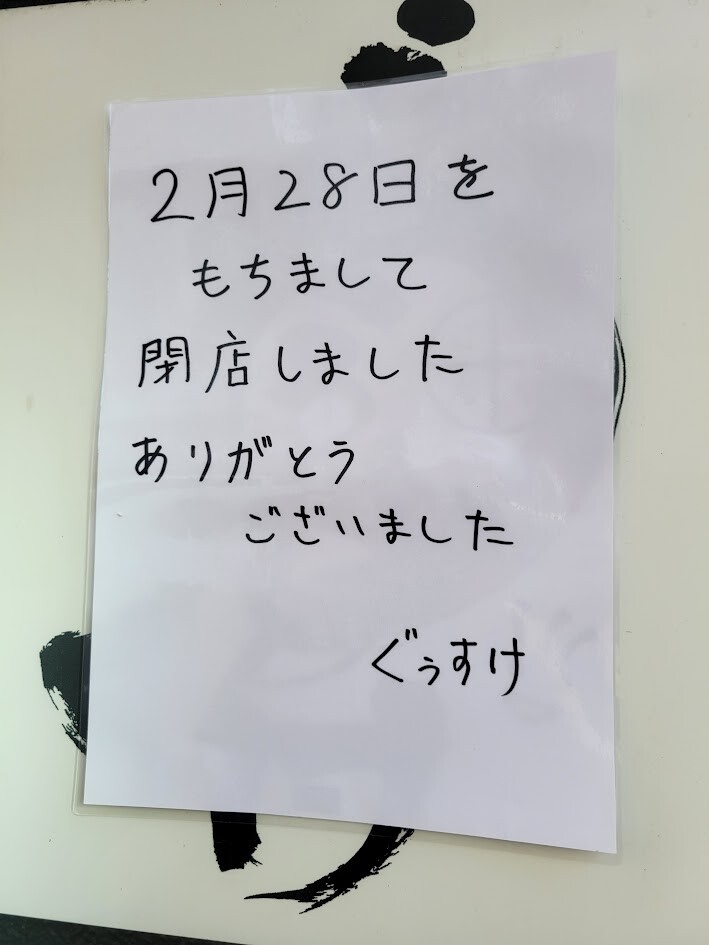 2月28日を
もちまして
閉店しました
ありがとう
ございました
ぐぅすけ